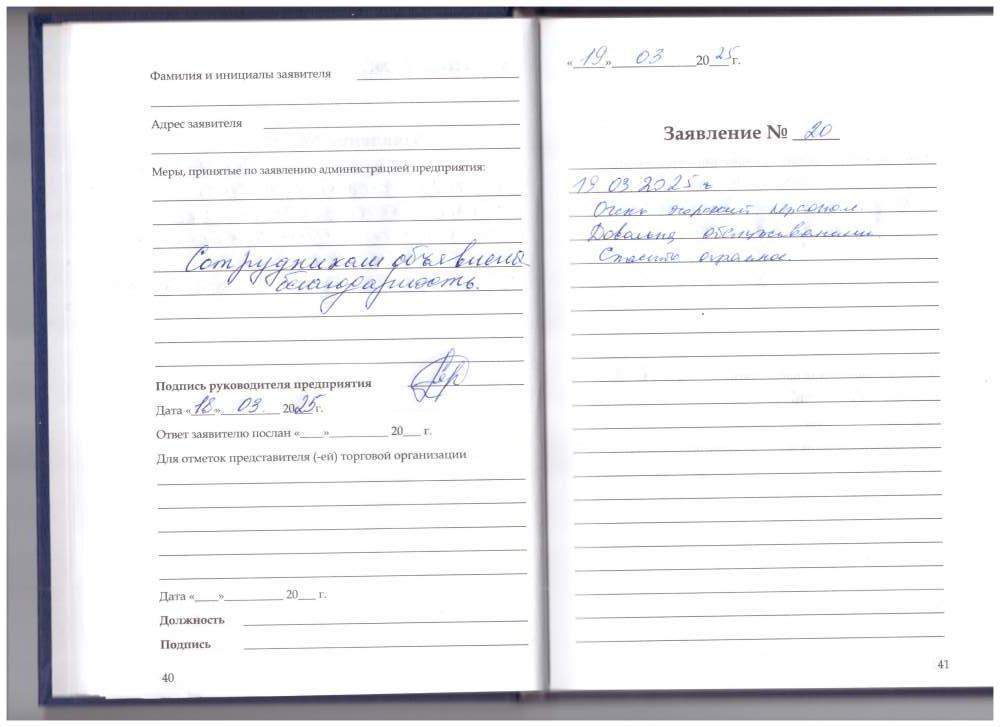 Фамилия и инициалы заявителя
Адрес заявителя
Меры, принятые по заявлению администрацией предприятия:
Сотрудникам объявлена
благодарность.
Подпись руководителя предприятия
Дата «18» 03. 2025г.
Ответ заявителю послан «____»__________ 20___ г.
Для отметок представителя (-ей) торговой организации
Дата «____»__________ 20___ г.
Должность
Подпись
40
«19» 03 2025г.
Заявление № 20
19 03 2025 г
Очень хороший персонал.
Довольна обслуживанием
Спасибо огромное.
41